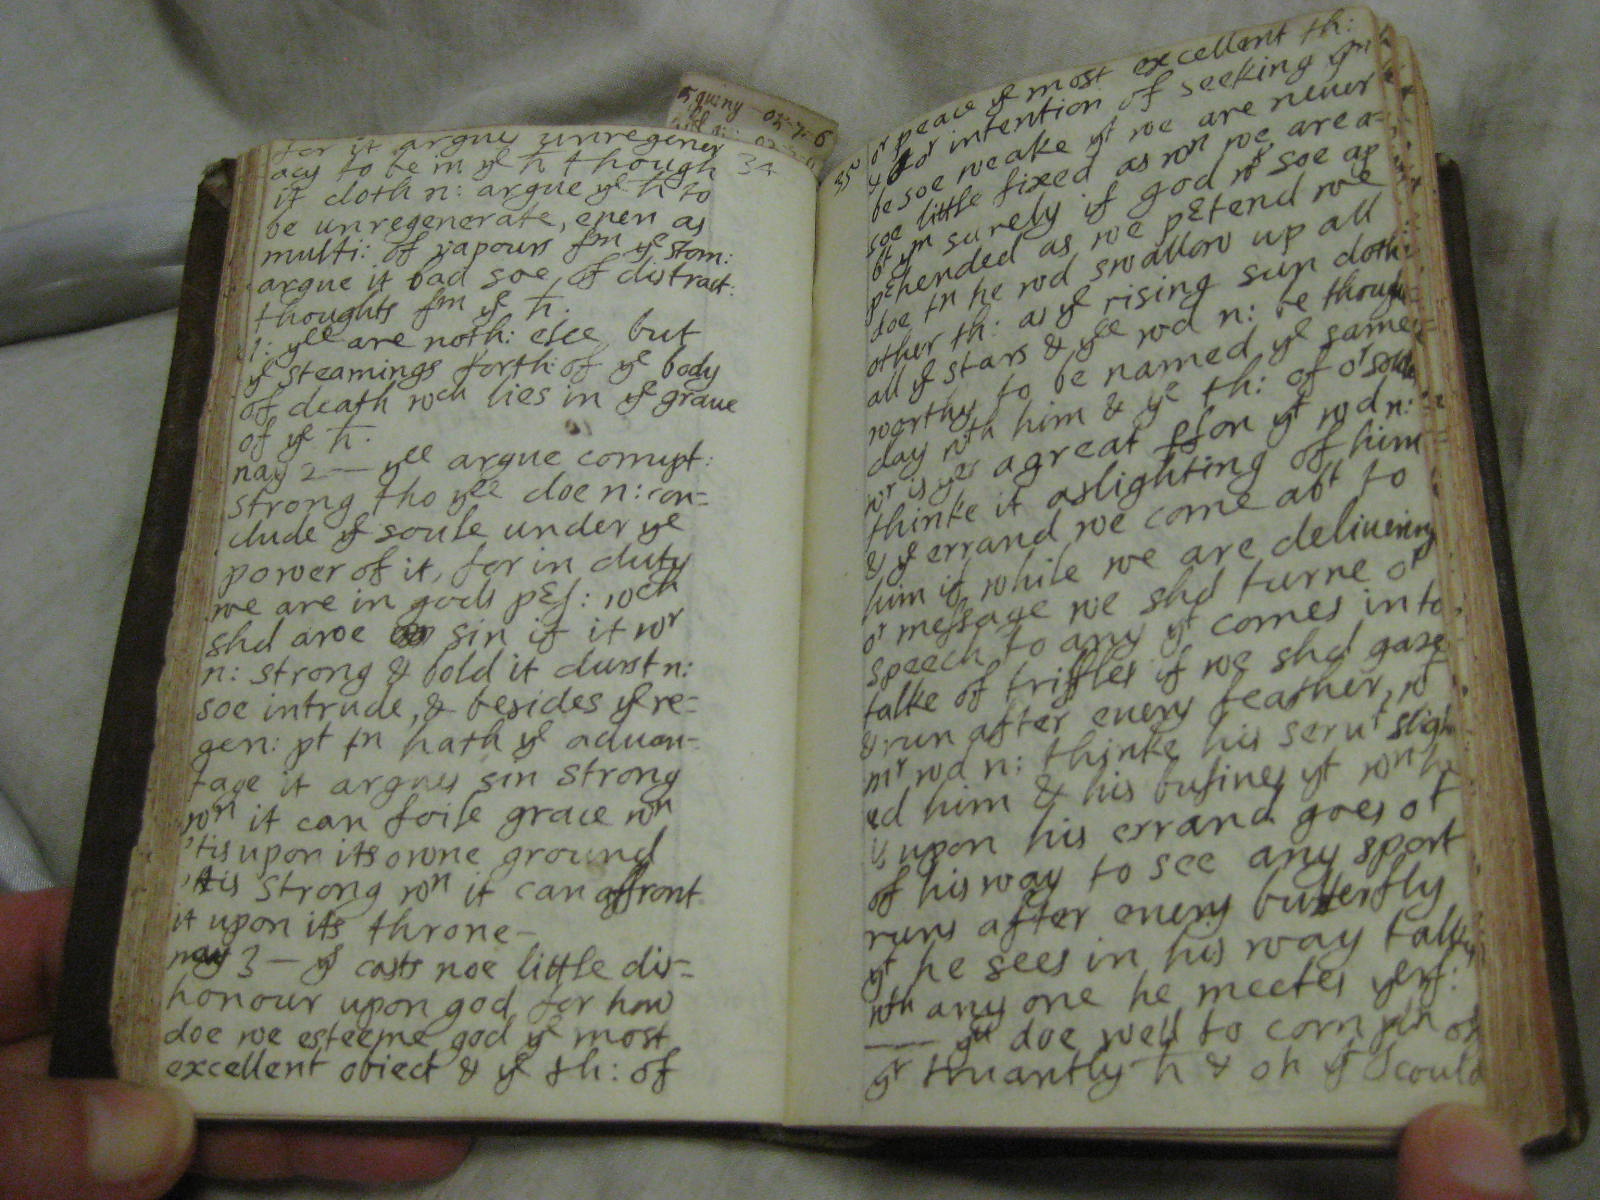 for it argue unregener
acy to be in ye h though 34
it doth n: argue ye h to
be unregenerate, even as
multi: of vapours fm ye stom:
argue it bad soe of distract:
thoughts fm ye h.
1: yee are noth: else but
ye steamings forth of ye body
of death wch lies in ye graue
of ye h.
nay 2 — yee argue corrupt:
strong tho yee doe n: con=
clude ye soule under ye
power of it, for in duty
we are in gods
shd awe sin if it wr
n: strong & bold it durst n:
soe intrude, & besides ye re=
gen: pt tn hath ye aduan-
tage it argues sin strong
wn it can foile grace wn
'tis upon its owne ground
'tis strong wn it can affront
it upon its throne —
nay 3 — yt casts noe little dis=
honour upon god for how
doe we esteeme god ye most
excellent obiect & ye th: of
35
or peace ye most excellent th:
& or intention of seeking ym
be soe weake yt we are never
soe little fixed as wn we are a=
bt ym surely if god ws soe ap
pehended as we petend we
doe tn he wd swallow up all
other th: as ye rising sun doth
all ye stars & yee wd n: be though
worthy to be named ye same
day wth him & ye th: of or soule
wr is yer a great pson yt wd n:
thinke it a slighting of him
& ye errand we come abt to
him if while we are deliuering
or message we shd turne or
speech to any yt comes into
talke of triffles if we shd gaze
& run after euery feather, wt
mr wd n: thinke his serut sligh
ed him & his busines yt wn he
is upon his errand goes ot
of his way to see any sport
runs after euery butterfly
yt he sees in his way talks
wth any one he meetes
— doe well to
yr truantly h & oh yt I could